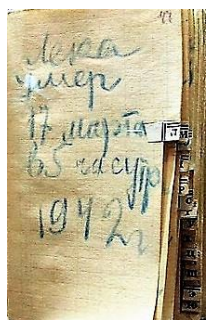 Лека
умер
17 марта
в5 часутр
1942г